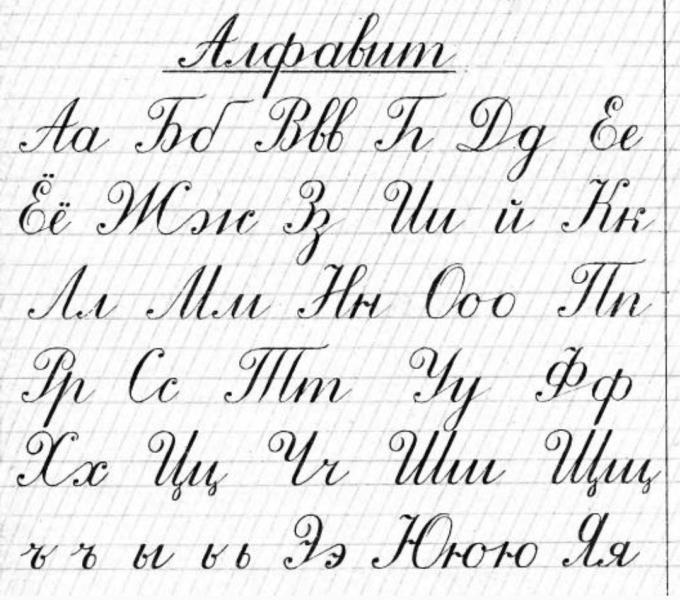 Алфавит
Аа Бб Ввв Гг Дд Ее
Ёё Жж Зз Ии й Кк
Лл Мм Нн Ооо Пп
Рр Сс Тт Уу Фф
Хх Цц Чч Шш Щщ
ъ ъ ы ь ь ЭэЮюю Яя